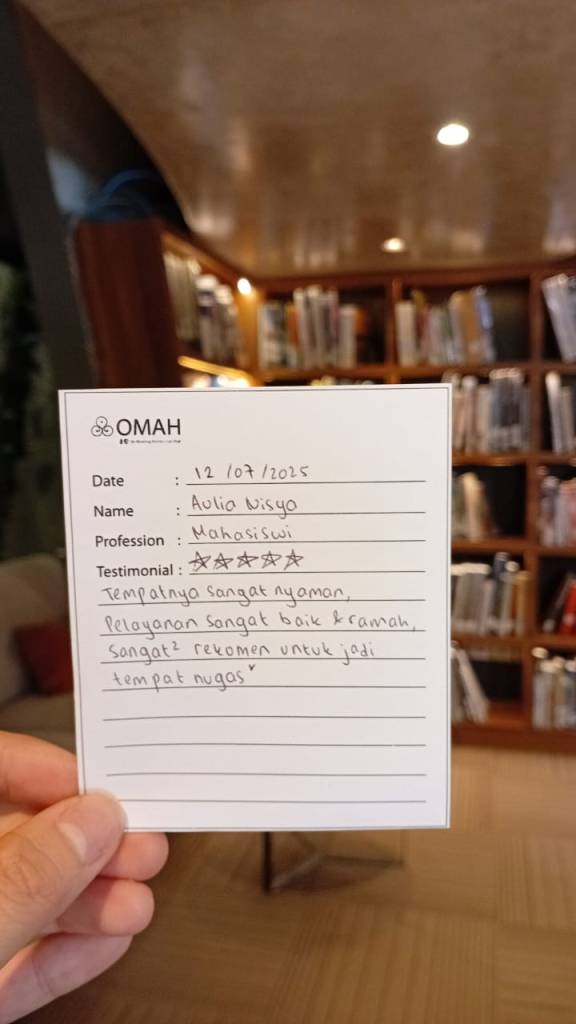 OMAH
Date : 12 /07 /2025
Name : Aulia Nisya
Profession : Mahasiswi
Testimonial : ☆☆☆☆☆
Tempatnya sangat nyaman,
Pelayanan sangat baik & ramah,
sangat² rekomen untuk jadi
tempat nugas